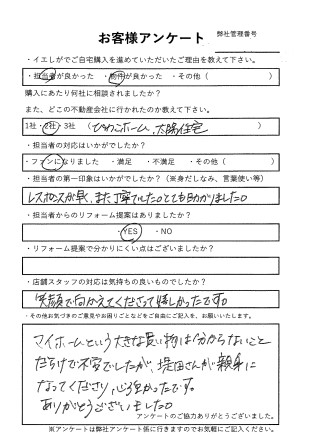 お客様アンケート
弊社管理番号
・イエしがでご自宅購入を進めていただいたご理由を教えて下さい。
・担当者が良かった ・物件が良かった ・その他（ ）
購入にあたり何社に相談されましたか？
また、どこの不動産会社に行かれたのか教えて下さい。
1社・2社・3社 （びわこホーム、太陽住宅 ）
・担当者の対応はいかがでしたか？
・ファンになりました ・満足 ・不満足 ・その他（ ）
・担当者の第一印象はいかがでしたか？（※身だしなみ、言葉使い等）
レスポンスが早く、また、丁寧でしたのでとても助かりました。
・担当者からのリフォーム提案はありましたか？
・YES ・NO
・リフォーム提案で分かりにくい点はございましたか？
・店舗スタッフの対応は気持ちの良いものでしたか？
笑顔で向かえてくださって嬉しかったです。
・その他お気づきのご意見やお困りごとなどをご自由にご記入を、お願いいたします。
マイホームという大きな買い物は分からないこと
だらけで不安でしたが、堤田さんが親身に
なってくださり、心強かったです。
ありがとうございました。
アンケートのご協力ありがとうございました。
※アンケートは弊社アンケート係に行きますのでお気軽にご記入ください。